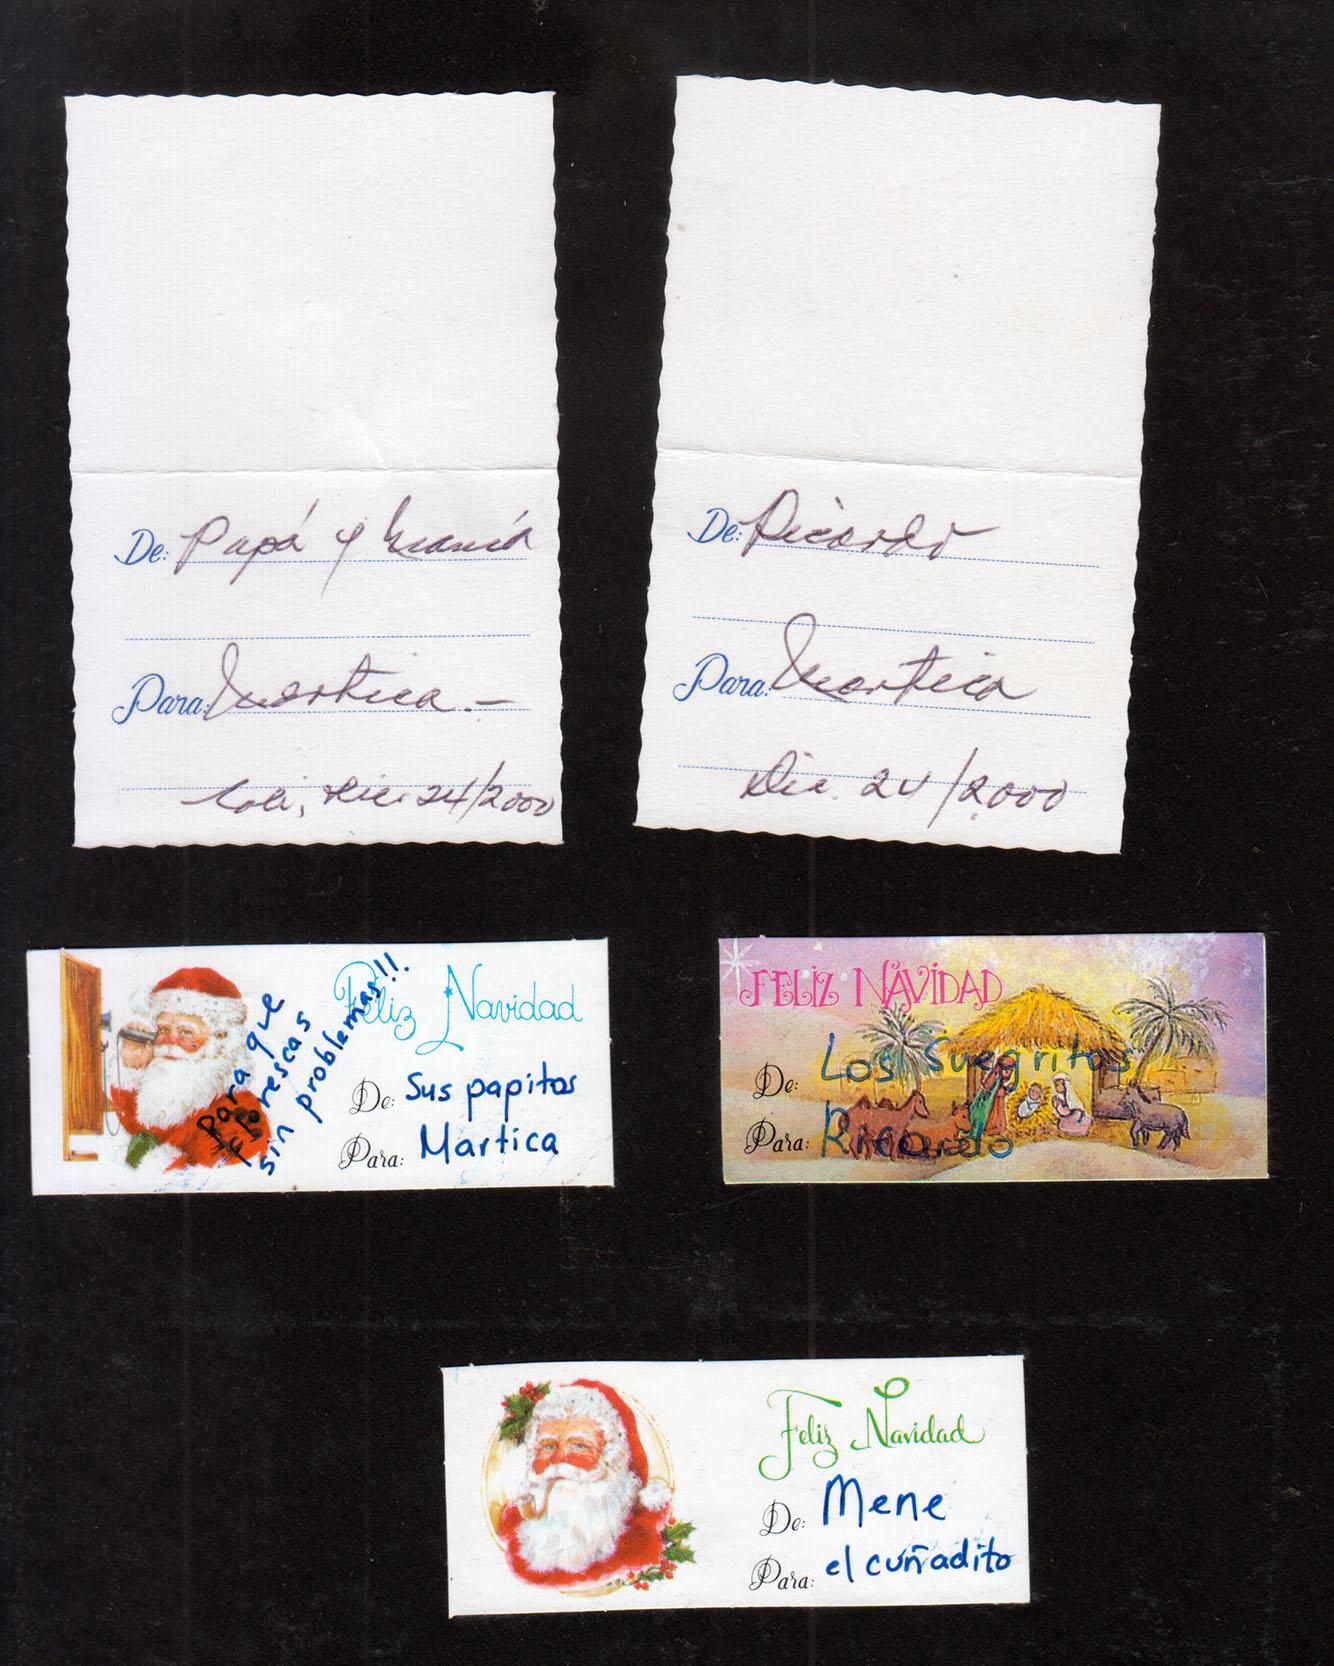 De: Papá y Mamá
Para: Martica.-
Cali, Dic. 24/2000
De: Ricardo
Para: Martica
Dic. 24/2000
Feliz Navidad
De: Sus papitos
Para: Martica
para que
sin problemas!!
FELIZ NAVIDAD
De: Los Suegritos
Para: Ricardo
Feliz Navidad
De: Mene
Para: el cuñadito